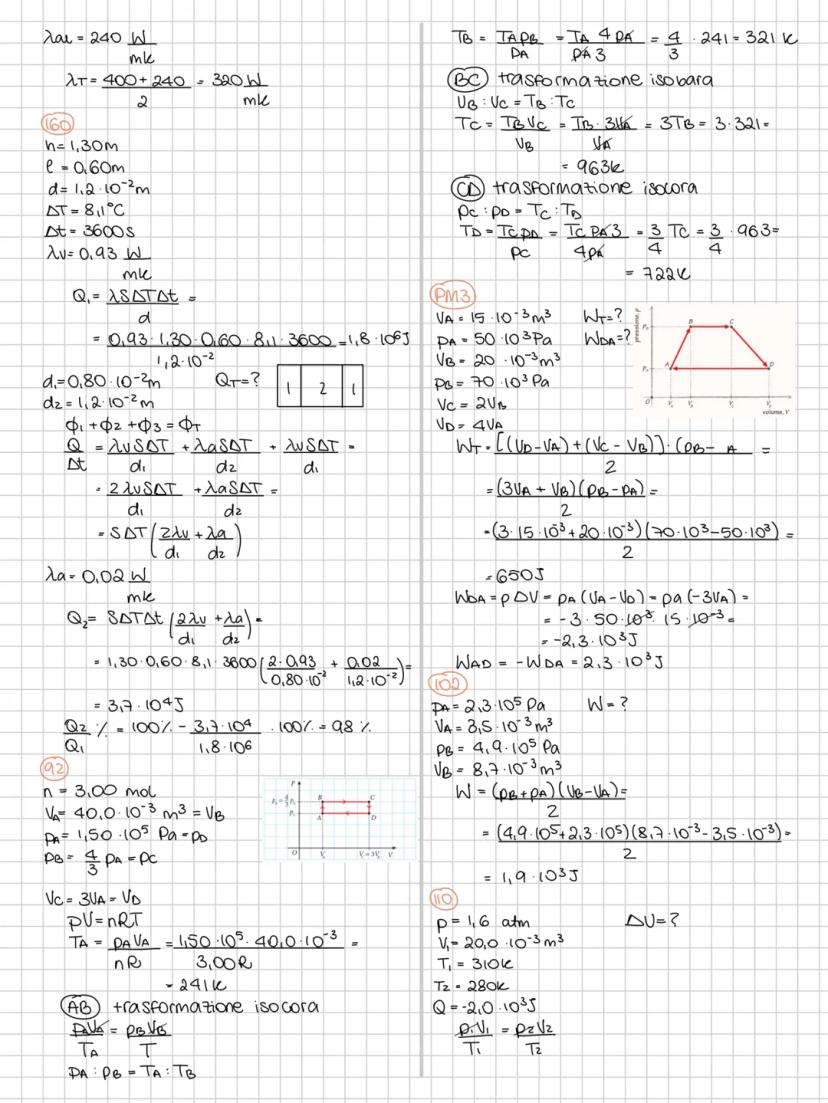 λal = 240 W/mk
λT = (400 + 240)/2 = 320 W/mk
160
h = 1,30m
l = 0,60m
d = 1,2 · 10⁻² m
ΔT = 8,1°C
Δt = 3600 s
λv = 0,93 W/mk
Q₁ = λSΔTΔt/d =
= (0,93 · 1,30 · 0,60 · 8,1 · 3600)/(1,2 · 10⁻²) = 1,8 · 10⁶ J
d₁ = 0,80 · 10⁻² m QT = ?
d₂ = 1,2 · 10⁻² m
1 2 1
ϕ₁ + ϕ₂ + ϕ₃ = ϕT
Q/Δt = λvSΔT/d₁ + λaSΔT/d₂ + λvSΔT/d₁ =
= 2λvSΔT/d₁ + λaSΔT/d₂ =
= SΔT (2λv/d₁ + λa/d₂)
λa = 0,02 W/mk
Q₂ = SΔTΔt (2λv/d₁ + λa/d₂) =
= 1,30 · 0,60 · 8,1 · 3600 (2 · 0,93/0,80 · 10⁻² + 0,02/1,2 · 10⁻²) =
= 3,7 · 10⁴ J
Q₂/Q₁ % = 100% - 3,7 · 10⁴/1,8 · 10⁶ · 100% = 98 %
92
n = 3,00 mol
VA = 40,0 · 10⁻³ m³ = VB
pA = 1,50 · 10⁵ Pa = pD
pB = 4/3 pA = pC
VC = 3VA = VD
pV = nRT
TA = pAVA/nR = (1,50 · 10⁵ · 40,0 · 10⁻³)/3,00R =
= 241 k
AB trasformazione isocora
pAVA/TA = pBVB/T
pA : pB = TA : TB
TB = TApB/pA = TA 4 pA/pA 3 = 4/3 · 241 = 321 k
BC trasformazione isobara
VB : VC = TB : TC
TC = TBVC/VB = TB · 3VA/VA = 3TB = 3 · 321 =
= 963k
CD trasformazione isocora
pC : pD = TC : TD
TD = TCpD/pC = TC pA 3/4pA = 3/4 TC = 3/4 · 963 =
= 722k
PM3
VA = 15 · 10⁻³ m³ WT = ?
pA = 50 · 10³ Pa WDA = ?
VB = 20 · 10⁻³ m³
pB = 70 · 10³ Pa
VC = 2VB
VD = 4VA
pressione, p
A B C D
O
volume, V
WT = [(VD - VA) + (VC - VB)] · (pB - A/2 =
= (3VA + VB)(pB - pA)/2 =
= (3 · 15 · 10⁻³ + 20 · 10⁻³)(70 · 10³ - 50 · 10³)/2 =
= 650 J
WDA = pΔV = pA (VA - VD) = pA (-3VA) =
= -3 · 50 · 10³ · 15 · 10⁻³ =
= -2,3 · 10³ J
WAD = -WDA = 2,3 · 10³ J
102
pA = 2,3 · 10⁵ Pa W = ?
VA = 3,5 · 10⁻³ m³
pB = 4,9 · 10⁵ Pa
VB = 8,7 · 10⁻³ m³
W = (pB + pA)(VB - VA)/2 =
= (4,9 · 10⁵ + 2,3 · 10⁵)(8,7 · 10⁻³ - 3,5 · 10⁻³)/2 =
= 1,9 · 10³ J
110
p = 1,6 atm ΔU = ?
V₁ = 20,0 · 10⁻³ m³
T₁ = 310k
T₂ = 280k
Q = -2,0 · 10³ J
p₁V₁/T₁ = p₂V₂/T₂